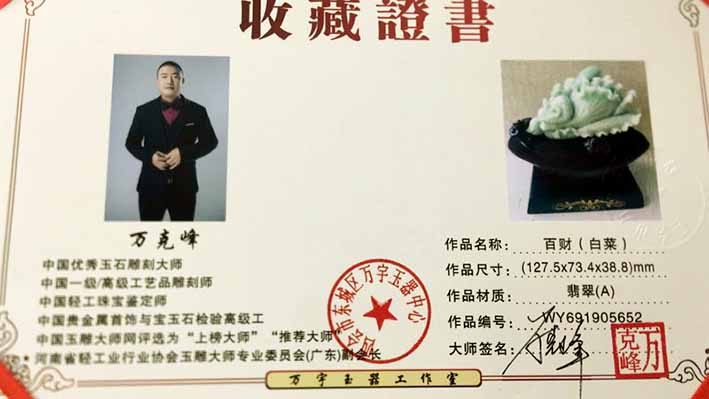 收藏證書
万克峰
中国优秀玉石雕刻大师
中国一级/高级工艺品雕刻师
中国轻工珠宝鉴定师
中国贵金属首饰与宝玉石检验高级工
中国玉雕大师网评选为“上榜大师”“推荐大师”
河南省轻工业行业协会玉雕大师专业委员会(广东)副会长
作品名称: 百财(白菜)
作品尺寸: (127.5x73.4x38.8)mm
作品材质: 翡翠(A)
作品编号: WY691905652
大师签名:
市东城区万宇玉器中心
万克峰
万宇玉器工作室